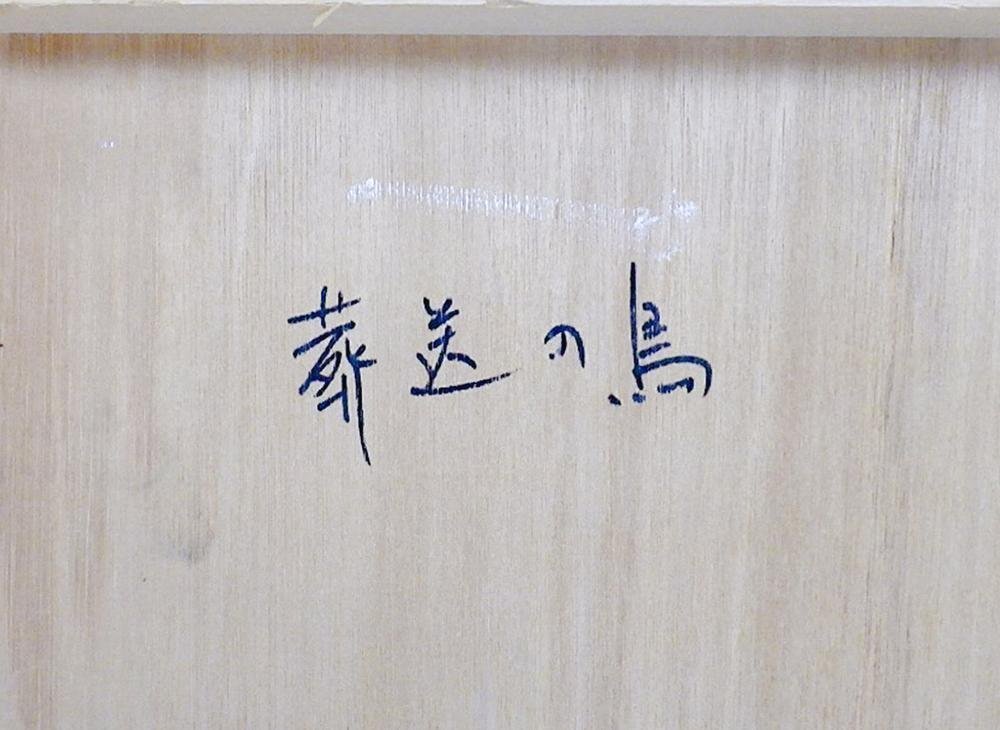 葬送の鳥